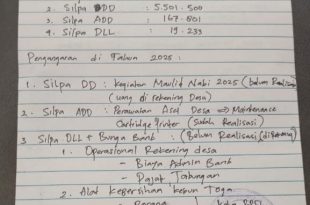 2. Silpa DD : 5.501.500
3. Silpa ADD : 167.801
4. Silpa DLL : 19.233
Penganggaran di Tahun 2025 :
1. Silpa DD : Kegiatan Maulid Nabi 2025 (belum Realisasi)
(uang di rekening Desa)
2. Silpa ADD : Perawatan Aset Desa => Maintenance
Catridge Printer (Sudah Realisasi)
3 Silpa DLL + Bunga Bank : (Belum Realisasi
1. Operasional Rekening desa
- Biaya Admin Bank
- Pajak Tabungan
2. Alat Kebersihan kebun Toga
- Parang